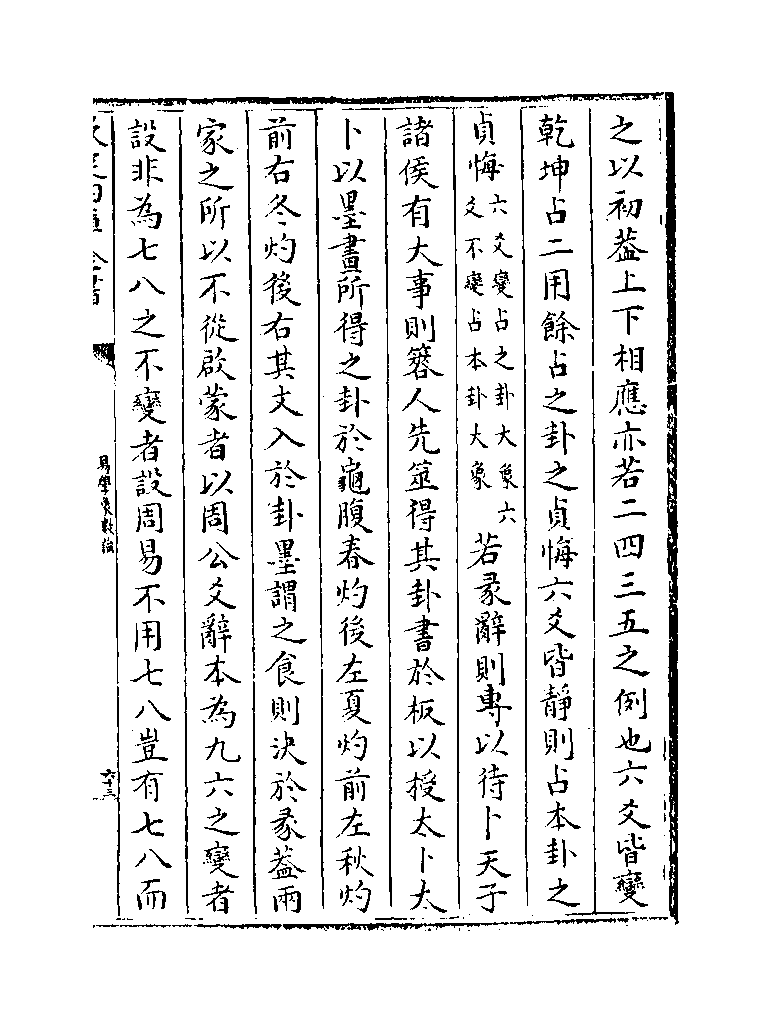 之以初葢上下相應亦若二四三五之例也六爻皆變
乾坤占二用餘占之卦之貞悔六爻皆靜則占本卦之
貞悔六爻變占之卦大象六
爻不變占本卦大象
若彖辭則專以待卜天子
諸侯有大事則簭人先筮得其卦書於板以授太卜太
卜以墨畫所得之卦於龜腹春灼後左夏灼前左秋灼
前右冬灼後右其文入於卦墨謂之食則決於彖葢兩
家之所以不從啟蒙者以周公爻辭本為九六之變者
設非為七八之不變者設周易不用七八豈有七八而
易學象數論
六十三